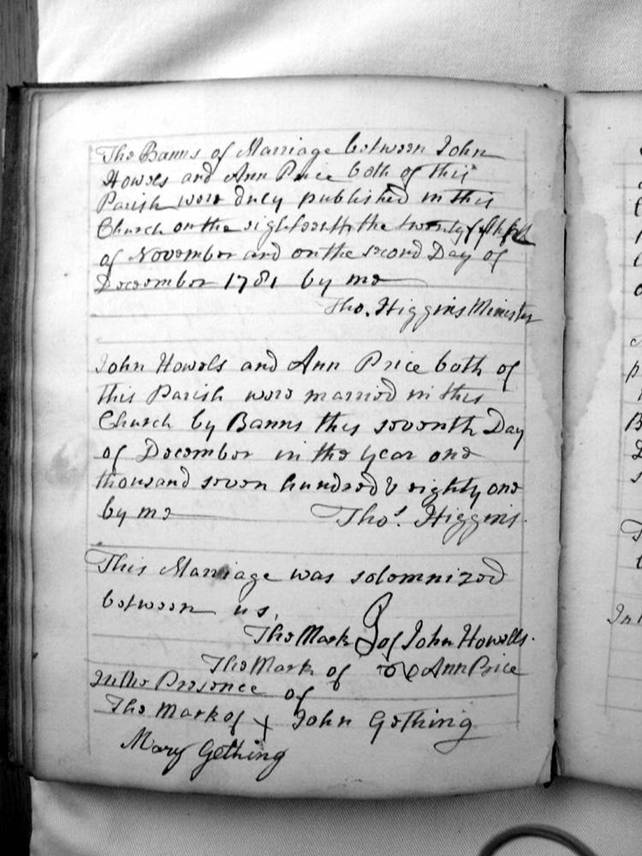 The Banns of Marriage between John
Howels and Ann Price both of this
Parish were duly published in this
Church on the eighteenth, the twenty fifth
of November and on the second Day of
December 1781 by me
Tho. Higgins Minister
John Howels and Ann Price both of
this Parish were married in this
Church by Banns this seventh Day
of December in the year one
thousand seven hundred & eighty one
by me Thos. Higgins.
This Marriage was solemnized
between us,
The Mark of John Howells.
The Mark of Ann Price
In the Presence of
The Mark of X John Gething
Mary Gething